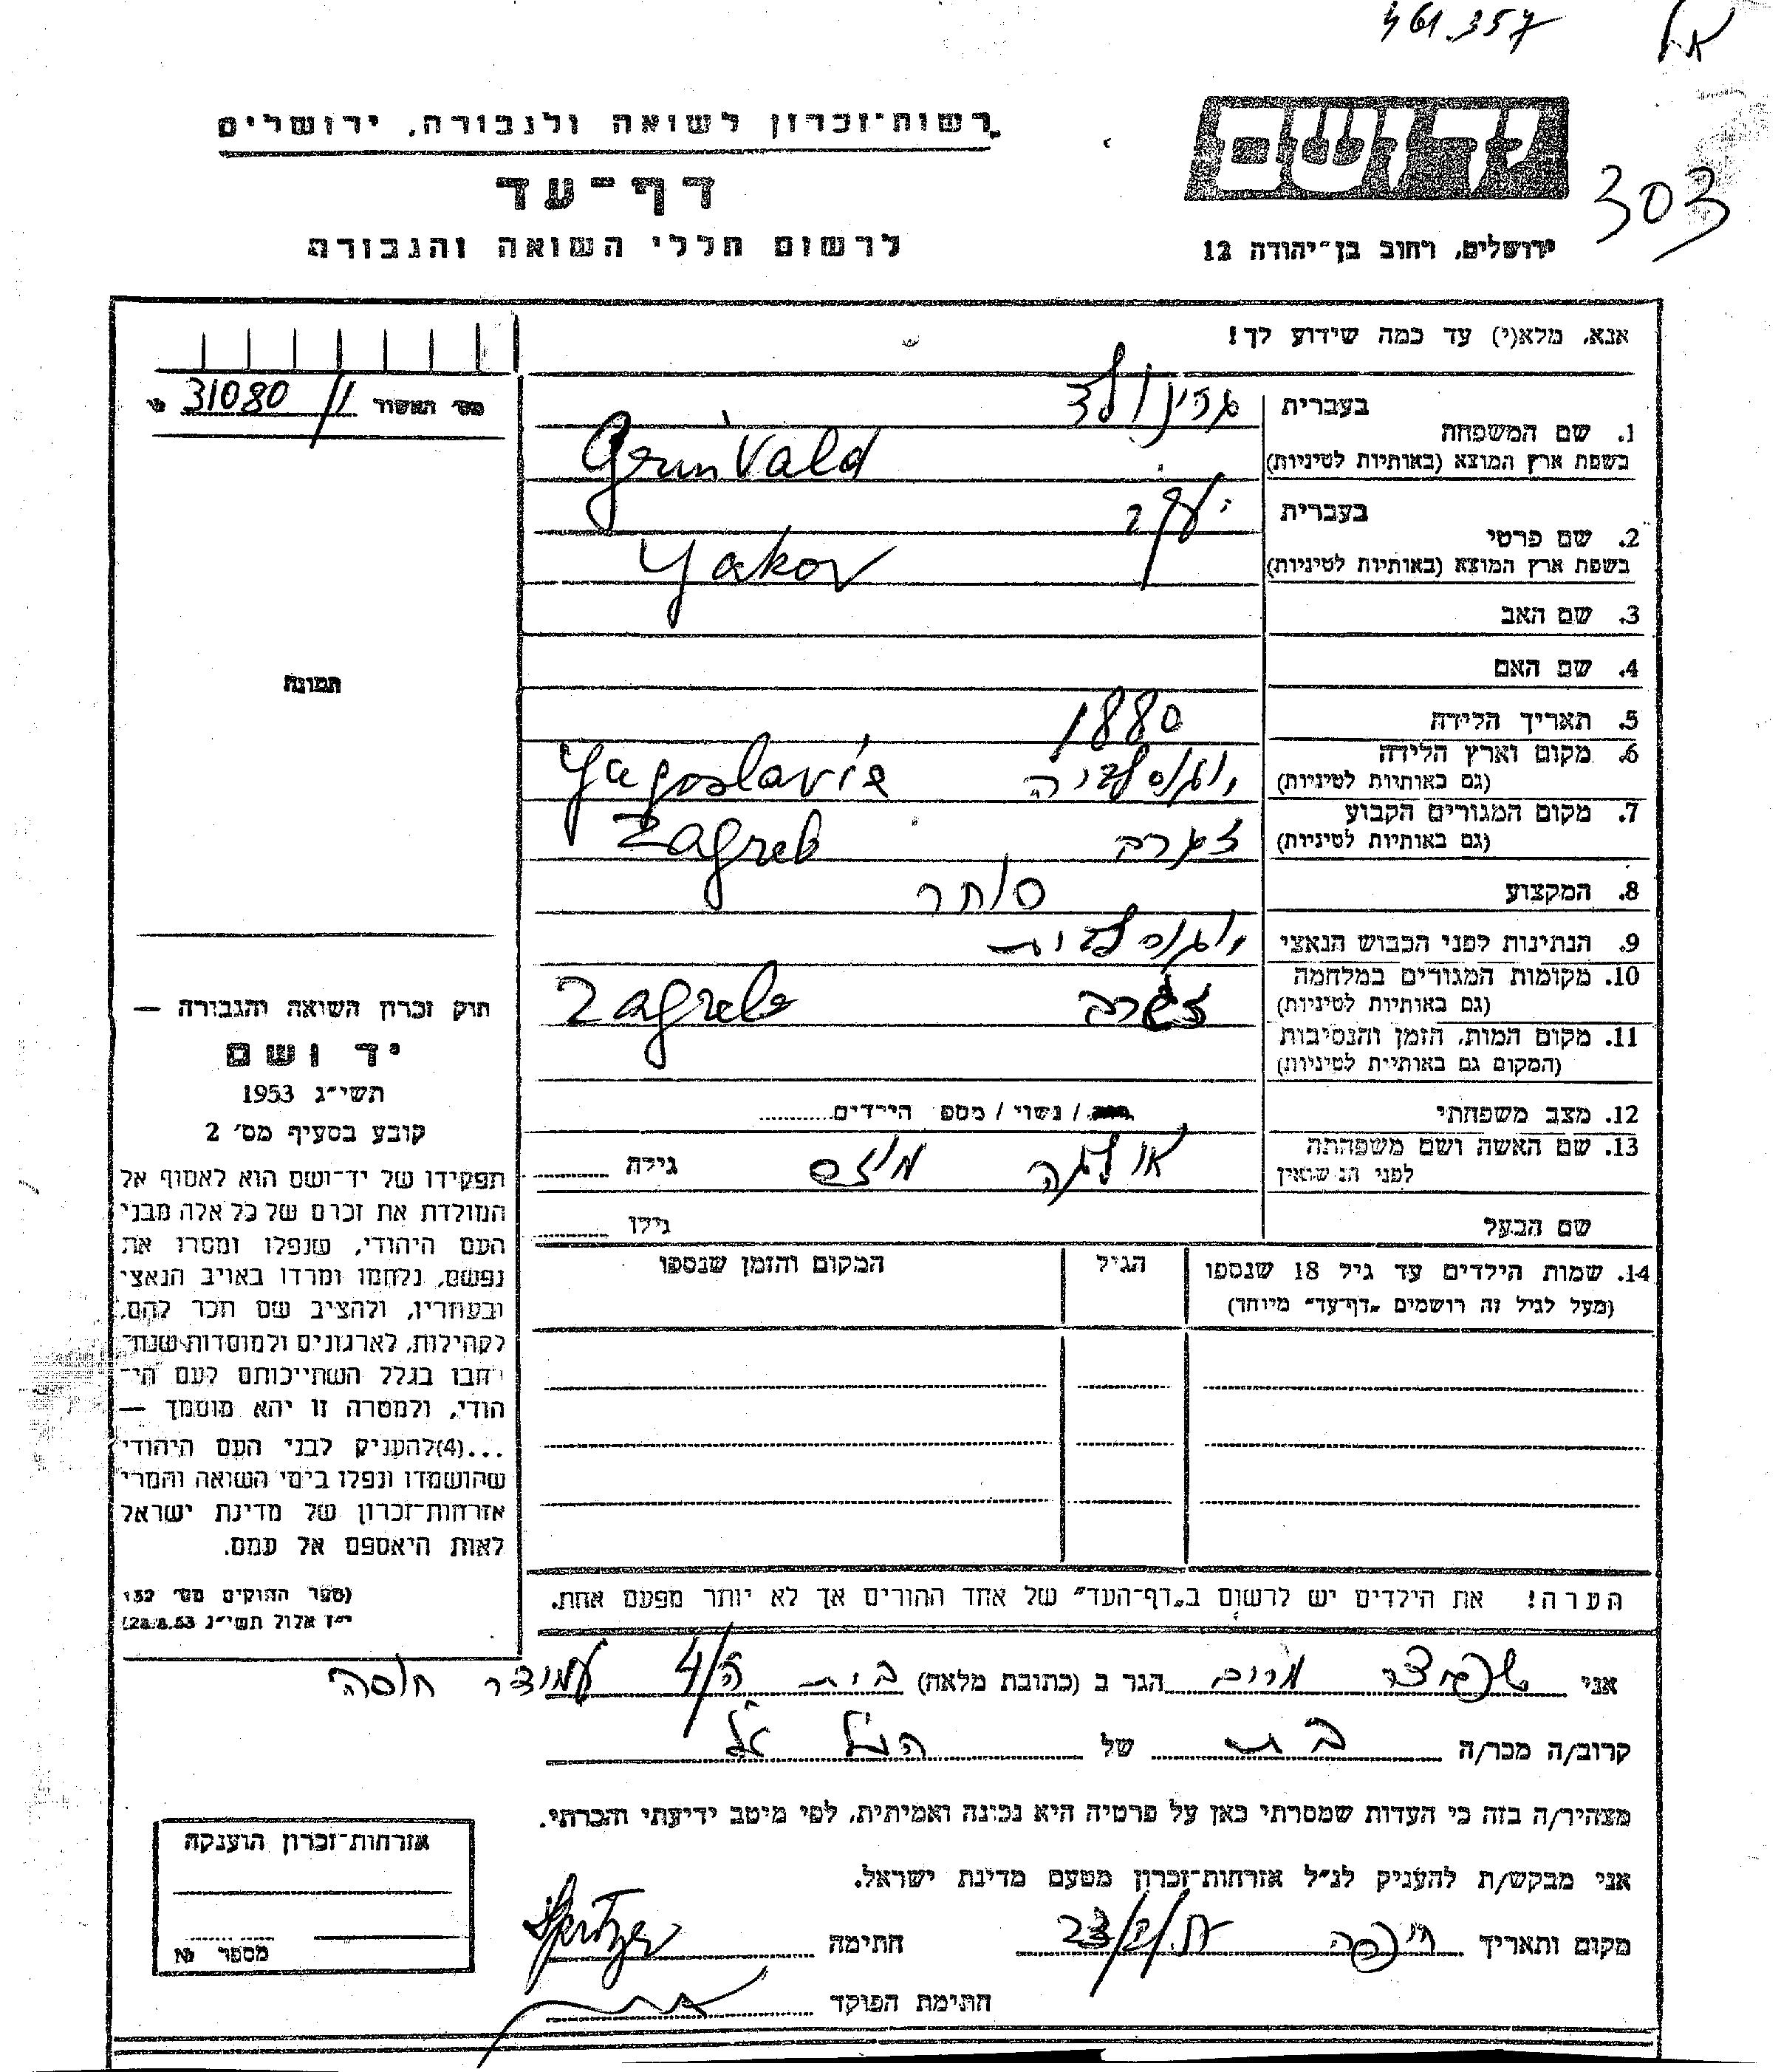 461.357
אל
יד ושם
303
רשות־זכרון לשואה ולגבורה, ירושלים
דף־עד
לרשום חללי השואה והגבורה
ירושלים, רחוב בן־יהודה 12
אנא, מלא(י) עד כמה שידוע לך!
מס׳ האשור 31080 //
בעברית
1. שם המשפחה
בשפת ארץ המוצא (באותיות לטיניות)
גרינולד
Grün Vald
בעברית
2. שם פרטי
בשפת ארץ המוצא (באותיות לטיניות)
יעקב
Yakov
3. שם האב
4. שם האם
5. תאריך הלידה 1880
6. מקום וארץ הלידה
(גם באותיות לטיניות)
יוגוסלביה Yugoslavia
7. מקום המגורים הקבוע
(גם באותיות לטיניות)
זגרב Zagreb
8. המקצוע סוחר
9. הנתינות לפני הכבוש הנאצי יוגוסלבית
10. מקומות המגורים במלחמה
(גם באותיות לטיניות)
זגרב Zagreb
11. מקום המות, הזמן והנסיבות
(המקום גם באותיות לטיניות)
12. מצב משפחתי / נשוי / מספ הילדים
13. שם האשה ושם משפחתה
לפני הנישואין
אולגה גילה
שם הבעל גילו
14. שמות הילדים עד גיל 18 שנספו
(מעל לגיל זה רושמים „דף־עד״ מיוחד)
הגיל
המקום והזמן שנספו
הערה! את הילדים יש לרשום ב„דף־העד״ של אחד ההורים אך לא יותר מפעם אחת.
תמונה
חוק זכרון השואה והגבורה —
יד ושם
תשי״ג 1953
קובע בסעיף מס׳ 2
תפקידו של יד־ושם הוא לאסוף אל
המולדת את זכרם של כל אלה מבני
העם היהודי, שנפלו ומסרו את
נפשם, נלחמו ומרדו באויב הנאצי
ובעוזריו, ולהציב שם וזכר להם,
לקהילות, לארגונים ולמוסדות שנח־
רבו בגלל השתייכותם לעם הי־
הודי, ולמטרה זו יהא מוסמך —
...(4) להעניק לבני העם היהודי
שהושמדו ונפלו בימי השואה והמרי
אזרחות־זכרון של מדינת ישראל
לאות היאספם אל עמם.
(ספר החוקים מס׳ 132
י״ז אלול תשי״ג 28.8.53)
אני שפיצר מרים הגר ב (כתובת מלאה) בית 4/ה
קרוב/ה מכר/ה בת של הנ״ל
מצהיר/ה בזה כי העדות שמסרתי כאן על פרטיה היא נכונה ואמיתית, לפי מיטב ידיעתי והכרתי.
אני מבקש/ת להעניק לנ״ל אזרחות־זכרון מטעם מדינת ישראל.
מקום ותאריך חיפה חתימה Spitzer
חתימת הפוקד
אזרחות־זכרון הוענקה
מספר №